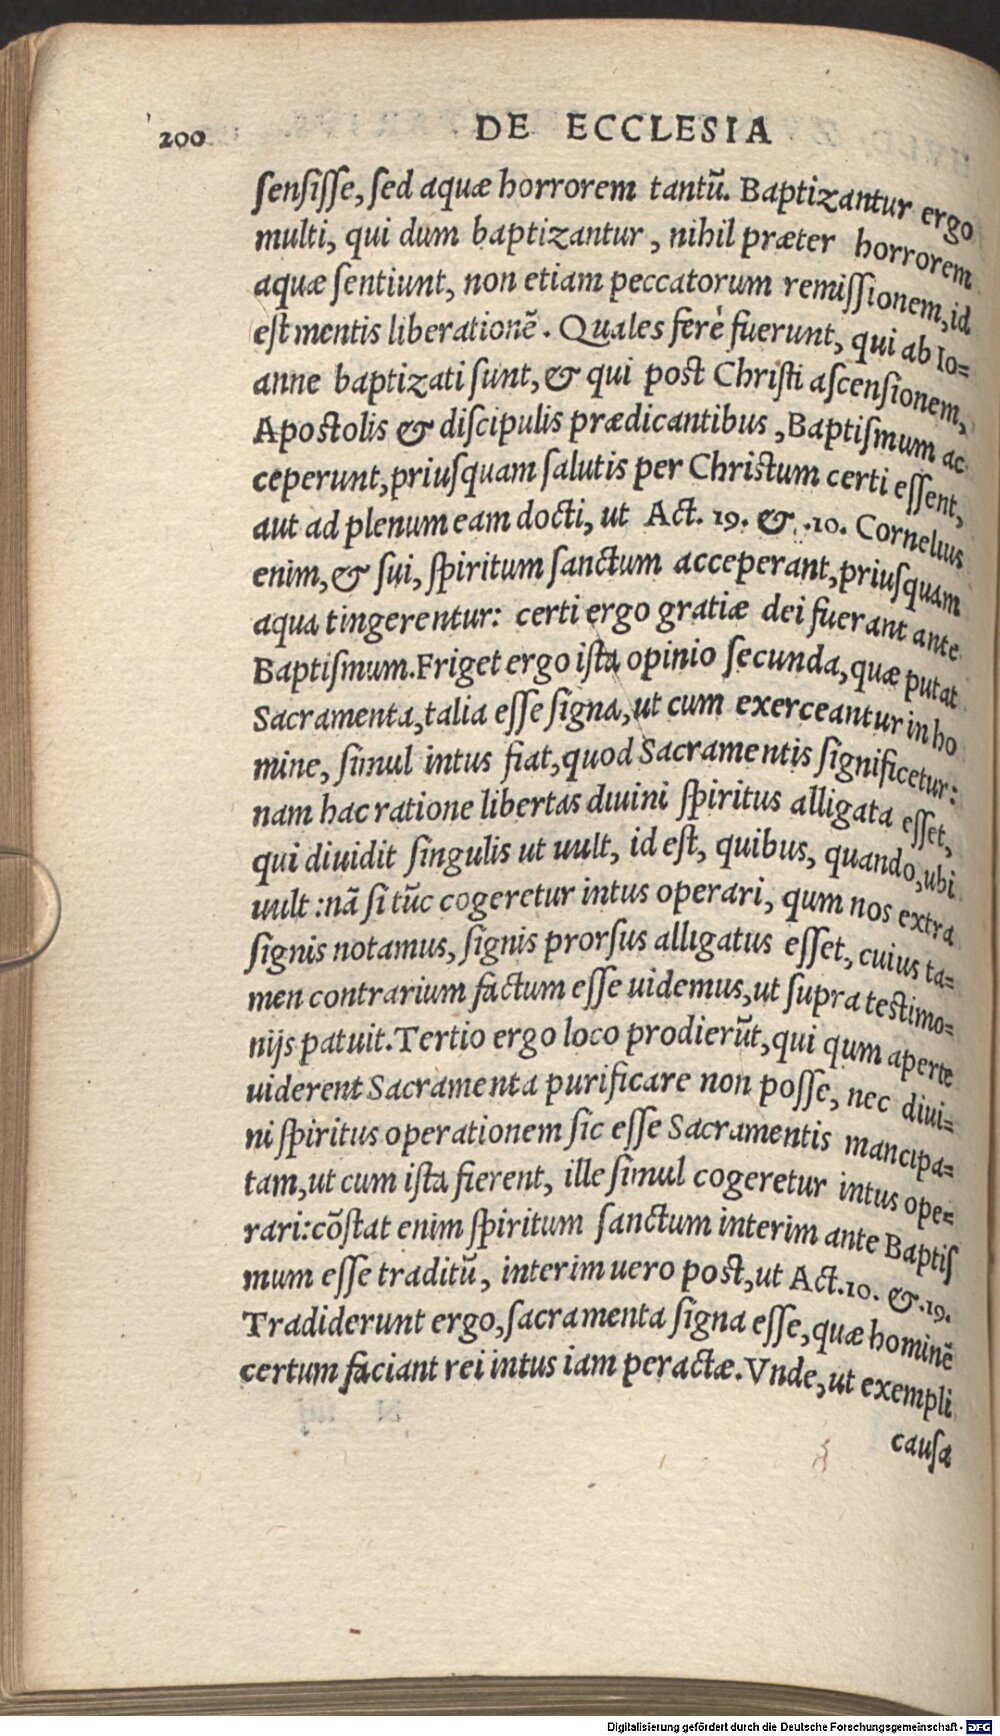 200 DE ECCLESIA
senſiſſe, ſed aquæ horrorem tantū. Baptizantur ergo
multi, qui dum baptizantur, nihil præter horrorem
aquæ ſentiunt, non etiam peccatorum remiſſionem, id
eſt mentis liberationē. Quales ferè fuerunt, qui ab Io=
anne baptizati ſunt, & qui post Chriſti aſcenſionem,
Apostolis & diſcipulis prædicantibus, Baptiſmum ac
ceperunt, priuſquam ſalutis per Christum certi eſſent,
aut ad plenum eam docti, ut Act. 19. & .10. Cornelius
enim, & ſui, ſpiritum ſanctum acceperant, priuſquam
aqua tingerentur: certi ergo gratiæ dei fuerant ante
Baptiſmum. Friget ergo iſta opinio ſecunda, quæ putat
Sacramenta, talia eſſe ſigna, ut cum exerceantur in ho
mine, ſimul intus fiat, quod Sacramentis ſignificetur:
nam hac ratione libertas diuini ſpiritus alligata eſſet,
qui diuidit ſingulis ut uult, id eſt, quibus, quando, ubi
uult: nā ſi tūc cogeretur intus operari, qum nos extra
ſignis notamus, ſignis prorſus alligatus eſſet, cuius ta=
men contrarium factum eſſe uidemus, ut ſupra testimo=
nijs patuit. Tertio ergo loco prodierūt, qui qum aperte
uiderent Sacramenta purificare non poſſe, nec diui=
ni ſpiritus operationem ſic eſſe Sacramentis mancipa=
tam, ut cum iſta fierent, ille ſimul cogeretur intus ope=
rari: cōſtat enim ſpiritum ſanctum interim ante Baptiſ
mum eſſe traditū, interim uero post, ut Act. 10. & .19.
Tradiderunt ergo, ſacramenta ſigna eſſe, quæ hominē
certum faciant rei intus iam peractæ. Vnde, ut exempli
cauſa
Digitalisierung gefördert durch die Deutsche Forschungsgemeinschaft - DFG